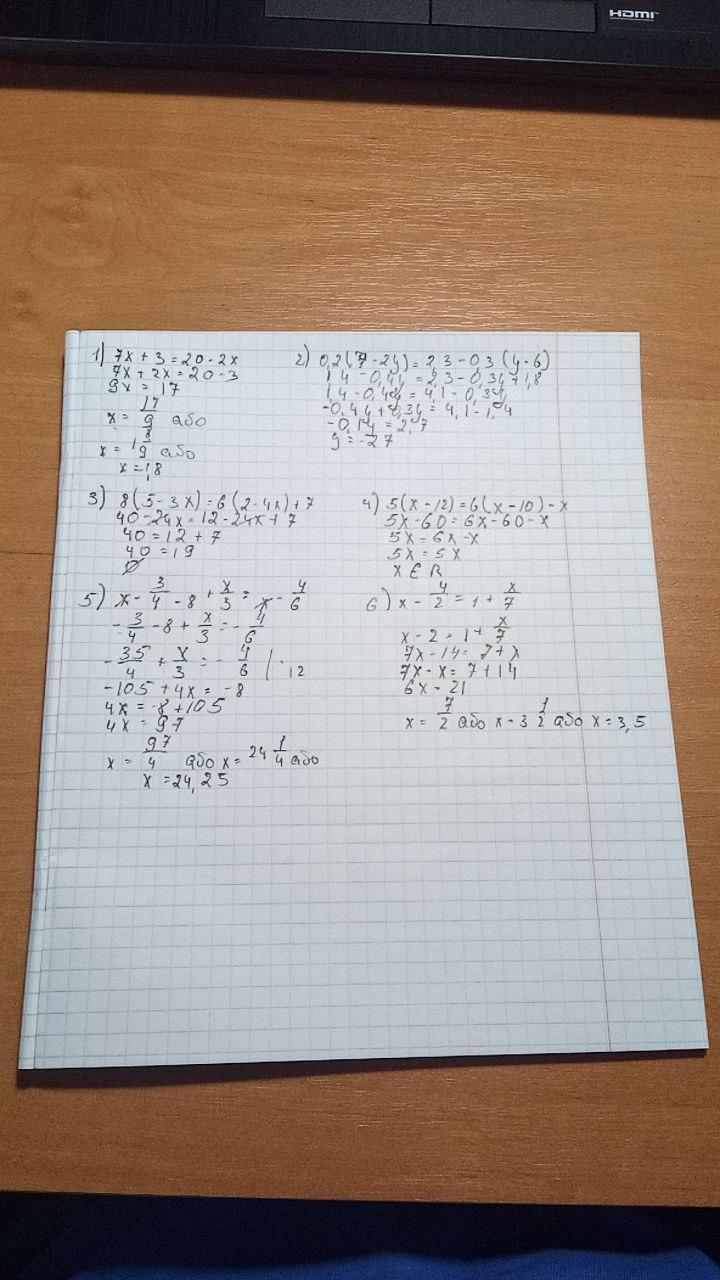 HDMI
1) 7x + 3 = 20 - 2x
7x + 2x = 20 - 3
9x = 17
x = 17/9 або
x = 1 8/9 або
x = 1,8
2) 0,2(7 - 2y) = 2,3 - 0,3(y - 6)
1,4 - 0,4y = 2,3 - 0,3y + 1,8
1,4 - 0,4y = 4,1 - 0,3y
-0,4y + 0,3y = 4,1 - 1,4
-0,1y = 2,7
y = -27
3) 8(5 - 3x) = 6(2 - 4x) + 7
40 - 24x = 12 - 24x + 7
40 = 12 + 7
40 = 19
∅
4) 5(x - 12) = 6(x - 10) - x
5x - 60 = 6x - 60 - x
5x = 6x - x
5x = 5x
x ∈ R
5) x - 3/4 - 8 + x/3 = x - 4/6
- 3/4 - 8 + x/3 = - 4/6
- 35/4 + x/3 = - 4/6 | · 12
-105 + 4x = -8
4x = -8 + 105
4x = 97
x = 97/4 або x = 24 1/4 або
x = 24,25
6) x - 4/2 = 1 + x/7
x - 2 = 1 + x/7
7x - 14 = 7 + x
7x - x = 7 + 14
6x = 21
x = 7/2 або x = 3 1/2 або x = 3,5